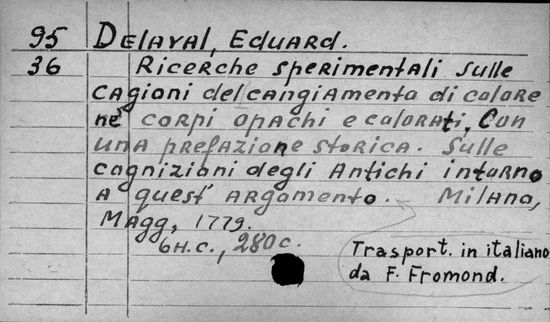 95 Delaval, Eduard.
36 Ricerche sperimentali sulle
cagioni del cangiamento di colore
ne' corpi opachi e colorati, Con
una prefazione storica. Sulle
cognizioni degli Antichi intorno
a quest' argomento. Milano,
Magg, 1779.
6H.C., 280c.
Trasport. in italiano
da F. Fromond.